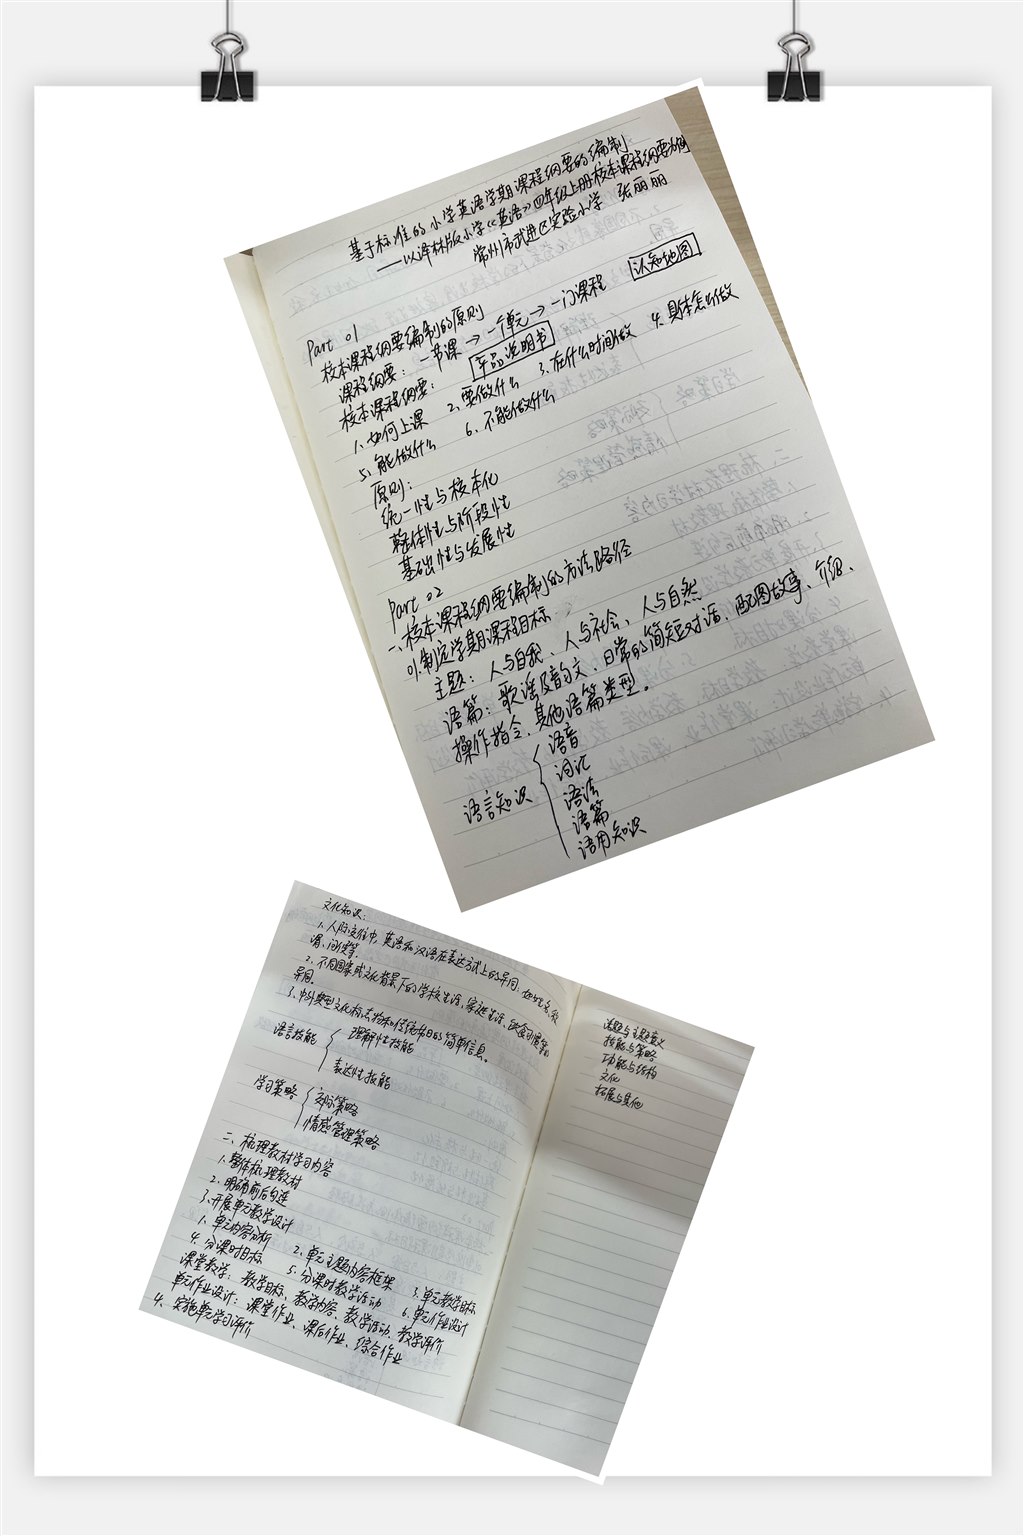 基于标准的小学英语学期课程纲要的编制
——以译林版小学《英语》四年级上册校本课程纲要为例
常州市武进区实验小学 张丽丽
Part 01
校本课程纲要编制的原则
课程纲要：一节课→一个单元→一门课程 认知地图
校本课程纲要： 产品说明书
1、如何上课 2、要做什么 3、在什么时间做 4、具体怎么做
5、能做什么 6、不能做什么
原则：
统一性与校本化
整体性与阶段性
基础性与发展性
Part 02
一、校本课程纲要编制的方法路径
01.制定学期课程目标
主题：人与自我、人与社会、人与自然
语篇：歌谣及韵文、日常的简短对话、配图故事、介绍、
操作指令、其他语篇类型。
语言知识
语音
词汇
语法
语篇
语用知识
文化知识：
1、人际交往中，英语和汉语在表达方式上的异同，如姓名、称
谓、问候等。
2、不同国家或文化背景下的学校生活、家庭生活、饮食习惯等的
异同。
3、中外典型文化标志物和传统节日的简单信息。
语言技能
理解性技能
表达性技能
学习策略
交际策略
情感管理策略
二、梳理教材学习内容
1、整体梳理教材
2、明确前后勾连
3、开展单元教学设计
1、单元内容分析 2、单元主题内容框架 3、单元教学目标
4、分课时目标 5、分课时教学活动 6、单元作业设计
课堂教学：教学目标、教学内容、教学活动、教学评价
单元作业设计：课堂作业、课后作业、综合作业
4、实施单元学习评价
话题与主题意义
技能与策略
功能与结构
文化
拓展与其他